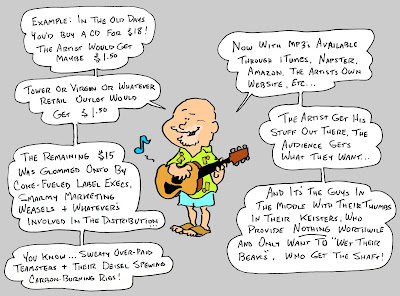 EXAMPLE: IN THE OLD DAYS
YOU'D BUY A CD FOR $18!
THE ARTIST WOULD GET
MAYBE $1.50
TOWER OR VIRGIN OR WHATEVER
RETAIL OUTLET WOULD
GET $1.50
THE REMAINING $15
WAS GLOMMED ONTO BY
COKE-FUELED LABEL EXECS,
SMARMY MARKETING
WEASELS + WHATEVER'S
INVOLVED IN THE DISTRIBUTION...
YOU KNOW... SWEATY OVER-PAID
TEAMSTERS + THEIR DEISEL SPEWING
CARBON-BURNING RIGS!
NOW WITH MP3'S AVAILABLE
THROUGH ITUNES, NAPSTER,
AMAZON, THE ARTISTS OWN
WEBSITE, ETC...
THE ARTIST GET HIS
STUFF OUT THERE, THE
AUDIENCE GETS
WHAT THEY WANT...
AND IT'S THE GUYS IN
THE MIDDLE WITH THEIR THUMBS
IN THEIR KEISTERS, WHO
PROVIDE NOTHING WORTHWILE
AND ONLY WANT TO "WET THEIR
BEAKS", WHO GET THE SHAFT!